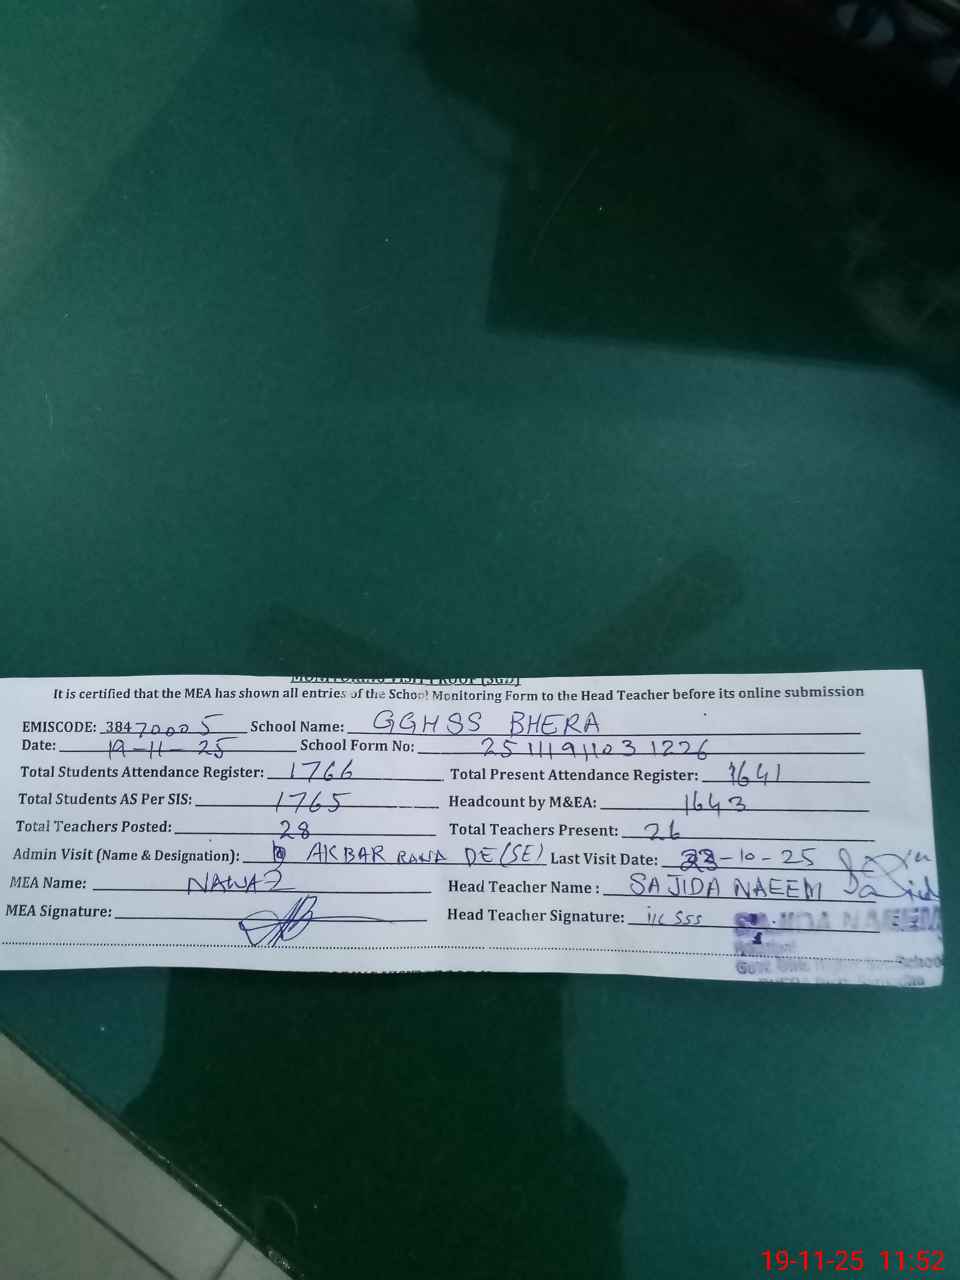 MONITORING VISIT PROOF [SGD]
It is certified that the MEA has shown all entries of the School Monitoring Form to the Head Teacher before its online submission
EMISCODE: 38470005 School Name: GGHSS BHERA
Date: 19-11-25 School Form No:
Total Students Attendance Register: 1766 Total Present Attendance Register: 1641
Total Students AS Per SIS: 1765 Headcount by M&EA: 1643
Total Teachers Posted: 28 Total Teachers Present: 26
Admin Visit (Name & Designation): AKBAR RANA DE(SE) Last Visit Date: -10-25
MEA Name: NAWAZ Head Teacher Name : SAJIDA NAEEM
MEA Signature: Head Teacher Signature: i/c SSS
SAJIDA NAEEM
Principal
19-11-25 11:52